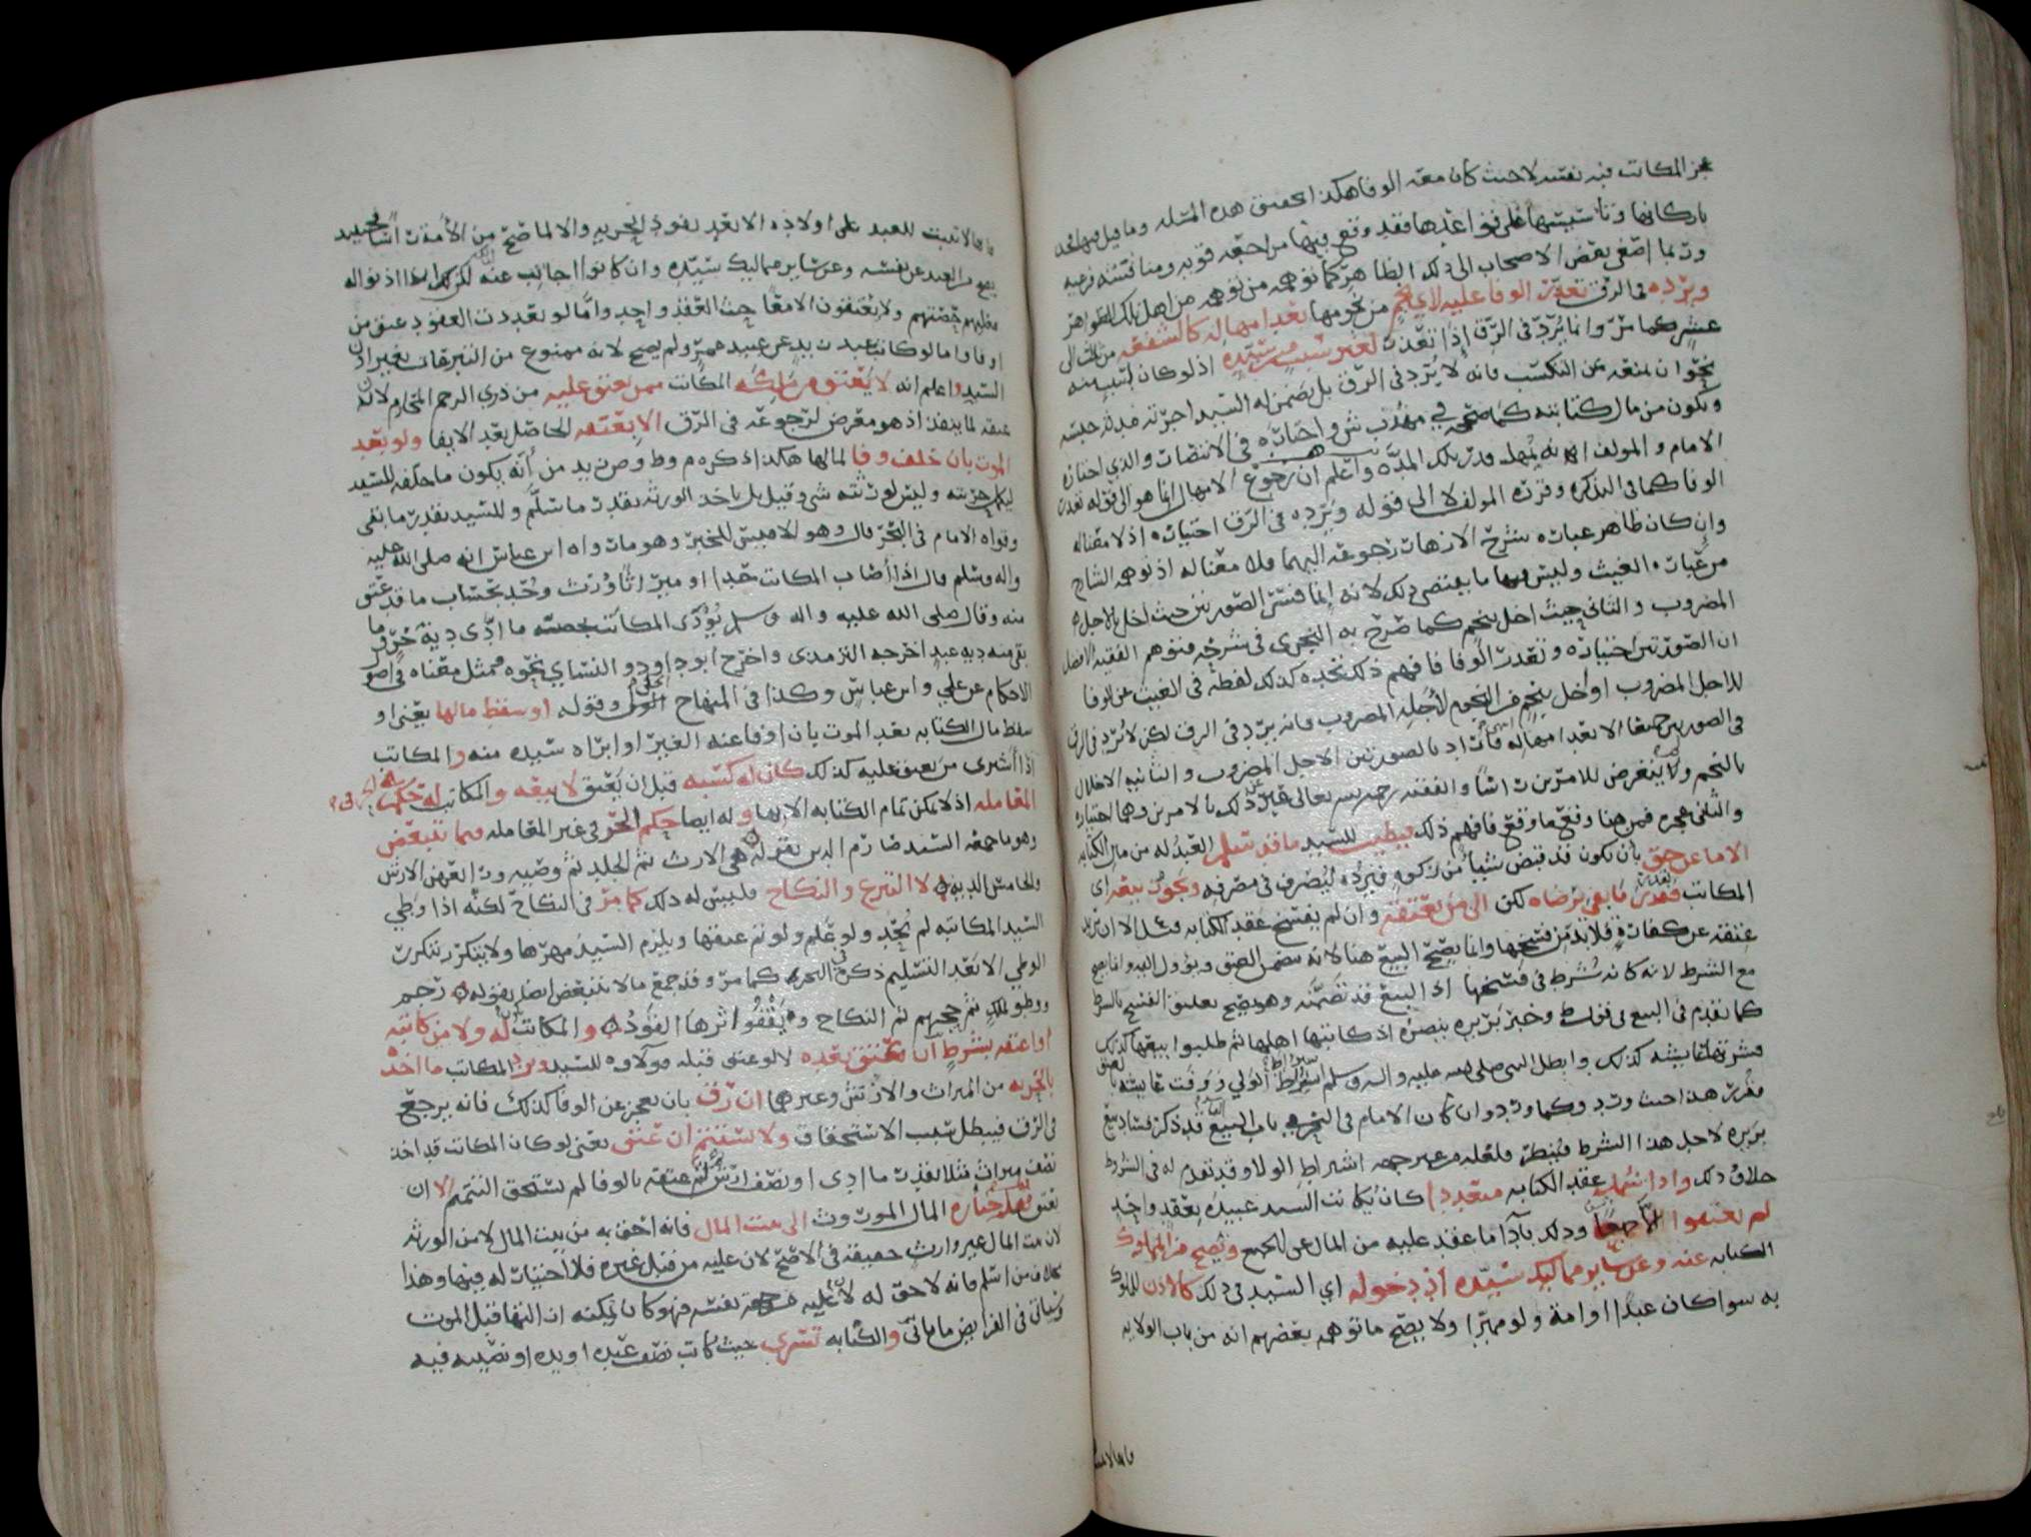 عجز المكاتب فيه نفسه لا حيث كان معه الوفا هكذا تحقيق هذه المسئله وما قيل فيها
باركانها وتأسيسها على قواعدها فقد وقع فيها مراجعه قويه ومناقشه
وربما اصغى بعض الاصحاب الى ذلك الظاهر كما توهمه من توهمه من اهل تلك الظواهر
ويرده في الرق تعذر الوفا عليه لاي نجم من نجومها بعد امهاله كالشفعه من ثلث الى
عشر كما مرّ وانما يُردّ في الرّق اذا تعذّر لغير سبب من سيّده اذ لو كان بسبب منه
نحو ان يمنعه عن التكسب فانه لا يُرَد في الرّق بل يضمن له السيد اجرته مدة حبسه
ويكون من مال كتابته كما صححه في مهذب ش واختاره في الانتصار والذي اختاره
الامام والمولف انه يمهل قدر تلك المدّه واعلم ان رجوع الامهال انما هو الى قوله تعذر
الوفا كما في التذكره وقرره المولف لا الى قوله ويرده في الرق اختياره اذ لا معنا له
وان كان ظاهر عباره شرح الازهار رجوعه اليهما فلا معنا له اذ توهمه الشارح
من عبارة الغيث وليس فيها ما يقتضي ذلك لانه انما فسّر الصّورتين حيث اخل بالاجل
المضروب والثاني حيث اخل بنجم كما صرّح به النجري في شرحه فتوهم الفقيه الافضل
ان الصّورتين اختياره وتعذر الوفا فافهم ذلك تجده كذلك لفظه في الغيث عن الوفا
للاجل المضروب او اخل بنجم من النجوم لأجله المضروب فانه يردّ في الرق لكن لا يُرد في الرق
في الصورتين جميعا الا بعد امهاله فأراد بالصورتين الاجل المضروب والثانيه الاخلال
بالنجم ولا يتعرض للامرين راسًا والفقيه رحمه الله تعالى عبّر عن ذلك بالامرين وهما اختياره
والثاني عجزه فمن هنا وقع ما وقع فافهم ذلك فيطيب للسّيد ما قد تسلم العبدُ له من مال الكتابه
الا ما عن حق بأن يكون قد قبض شيئًا من زكوه فيرُدّه ليُصرف في مصرفه ويجوز بيعه اى
المكاتب فقدر ما بقي برضاه لكن الى من يعتقه وان لم يفسخ عقد الكتابه مثل الا ان يريد
عتقه عن كفارة فلا بد من فسخها وانما يصّح البيع هنا لانه يتضمن العتق ويؤول اليه وانما يصح
مع الشرط لانه كانه شُرط في فسخها اذ البيع قد تضمّنه وهو يصّح تعليق الفسخ بالشرط
كما تقدم في البيع في قول ط وخبر بريره ينصره اذ كاتبها اهلها ثم طلبوا بيعها كذلك
فشرتها عايشه كذلك وابطل النبى صلى الله عليه واله وسلم اشتراط الولي ووفت عايشه بالعتق
مقرر هذا حيث ورد وكما ورد وان كان الامام في البحر في باب البيع قد ذكر فساد بيع
بريره لاجل هذا الشرط فيُنظر فلعله من غير جهه اشتراط الولا وقد تقدم له في الشروط
خلاف ذلك واذا شمل عقد الكتابه متعددا كان يكاتب السيد عبيده بعقد واحد
لم يعتقوا الا جميعًا وذلك بادآ ما عقد عليه من المال عن الجميع وتصح من المملوك
الكتابه عنه وعن ساير مماليك سيّده اذن دخوله اي السيد في ذلك كالاذن للملوك
به سوا كان عبدًا او امة ولو مميزا ولا يصّح ما توهمه بعضهم انه من باب الولايه
فانها لا
فانها لا تثبت للعبد على اولاده الا بعد نفوذ الحريه والا لما صح من الامة راسًا
يصح من العبد عن نفسه وعن ساير مماليك سيّده وان كانوا اجانب عنه لكن كذلك اذا اذنوا له
فعليهم حصّتهم ولا يُعتقون الا معًا حيث العقد واحد واما لو تعددت العقود عتق من
اوفا واما لو كاتب عبد زيدٍ عن عبيد عمرو لم يصح لانه ممنوع من التبرعات بغير اذن
السيد واعلم انه لا يُعتق من ملكه المكاتب ممن يعتق عليه من ذوي الرحم المحارم لان
عتقه لما ينفذ اذ هو معرض لرجوعه في الرّق الا بعتقه الحاصل بعد الايفا ولو بعد
الموت بان خلف وفا لمالها هكذا ذكره م وط وص وزيد من أنّه يكون ما خلفه للسّيد
ليكمل حريته وليس لورثته شي وقيل بل ياخذ الورثه بقدر ما سلّم وللسّيد بقدر ما بقي
وقواه الامام في البحر قال وهو الاقيس للخبر وهو ما رواه ابن عباس انه صلى الله عليه
واله وسلم قال اذا أصاب المكاتب حدا او ميرا ثًا وُرّث وحُدّ بحسَاب ما قد عتق
منه وقال صلى الله عليه واله وسلم يُؤدّى المكاتب بحصته ما ادّى دية حُرّ وما
بقي منه ديه عبدٍ اخرجه الترمذى واخرج ابو داود والنسّاي نحوه فمثل معناه في اصول
الاحكام عن علي وابن عباسٍ وكذا في المنهاج وقوله او سقط مالها يعني او
سقط مال الكتابه بعد الموت بان اوفا عنه الغير او ابراه سيّده منه والمكاتب
اذا أشترى من يعتق عليه كذلك كان له كسبه قبل ان يُعتق لا بيعه والمكاتب له حكم
المعامله اذ لا يمكن تمام الكتابه الا بها وله ايضا حكم الحرّ في غير المعامله فيما يتبعّض
وهو ما جمعه السّيد صارم الدين بقوله هي الارث ثم الحد ثم وصيه ورابعهن الارش
والخامس الديه لا التبرع والنكاح فليس له ذلك كما مرّ في النكاح لكنّه اذا وطي
السّيد المكاتبه لم يُحدّ ولو علم ولو تم عتقها ويلزم السّيدُ مهرها ولا يتكرّر بتكرر
الوطي الا بعد التسليم ذكره في البحر كما مرّ وقد جمع ما لا يتبعّض ايضا بقوله رَجم
ووطو لملكٍ ثم حجهم ثم النكاح ويقفُوا اثرها القوُد والمكاتب له ولا من كاتبه
او اعتقه بشرطٍ ان يُعتق بعده لا لو عتق قبله فولآوه للسّيد ويرد المكاتب ما اخذ
بالحريه من الميراث والارش وغيرهما ان رّق بان يعجز عن الوفا كذلك فانه يرجع
في الرّق فيبطل سبب الاستحقاق ولا يستتم ان عتق يعني لو كان المكاتب قد اخذ
نصف ميراث مثلا بقدر ما ادى او نصف ارش ثم عتقه بالوفا لم يستحق التتمه الا ان
يعتق قبل حيازه المال الموروث الى بيت المال فانه احق به من بيت المال لا من الورثه
لان بيت المال غير وارث حقيقة في الاصح لان عليه من قبل غيره فلا اختيار له فيها وهذا
كمن اسلم فانه لا حق له لا من جهة نفسه فهو كان يمكنه ان انتها قبل الموت
وسياتي في الفرايض ما ياتي والكتابه تسري حيث كاتب نصف عبده او يده او نصيبه فيه